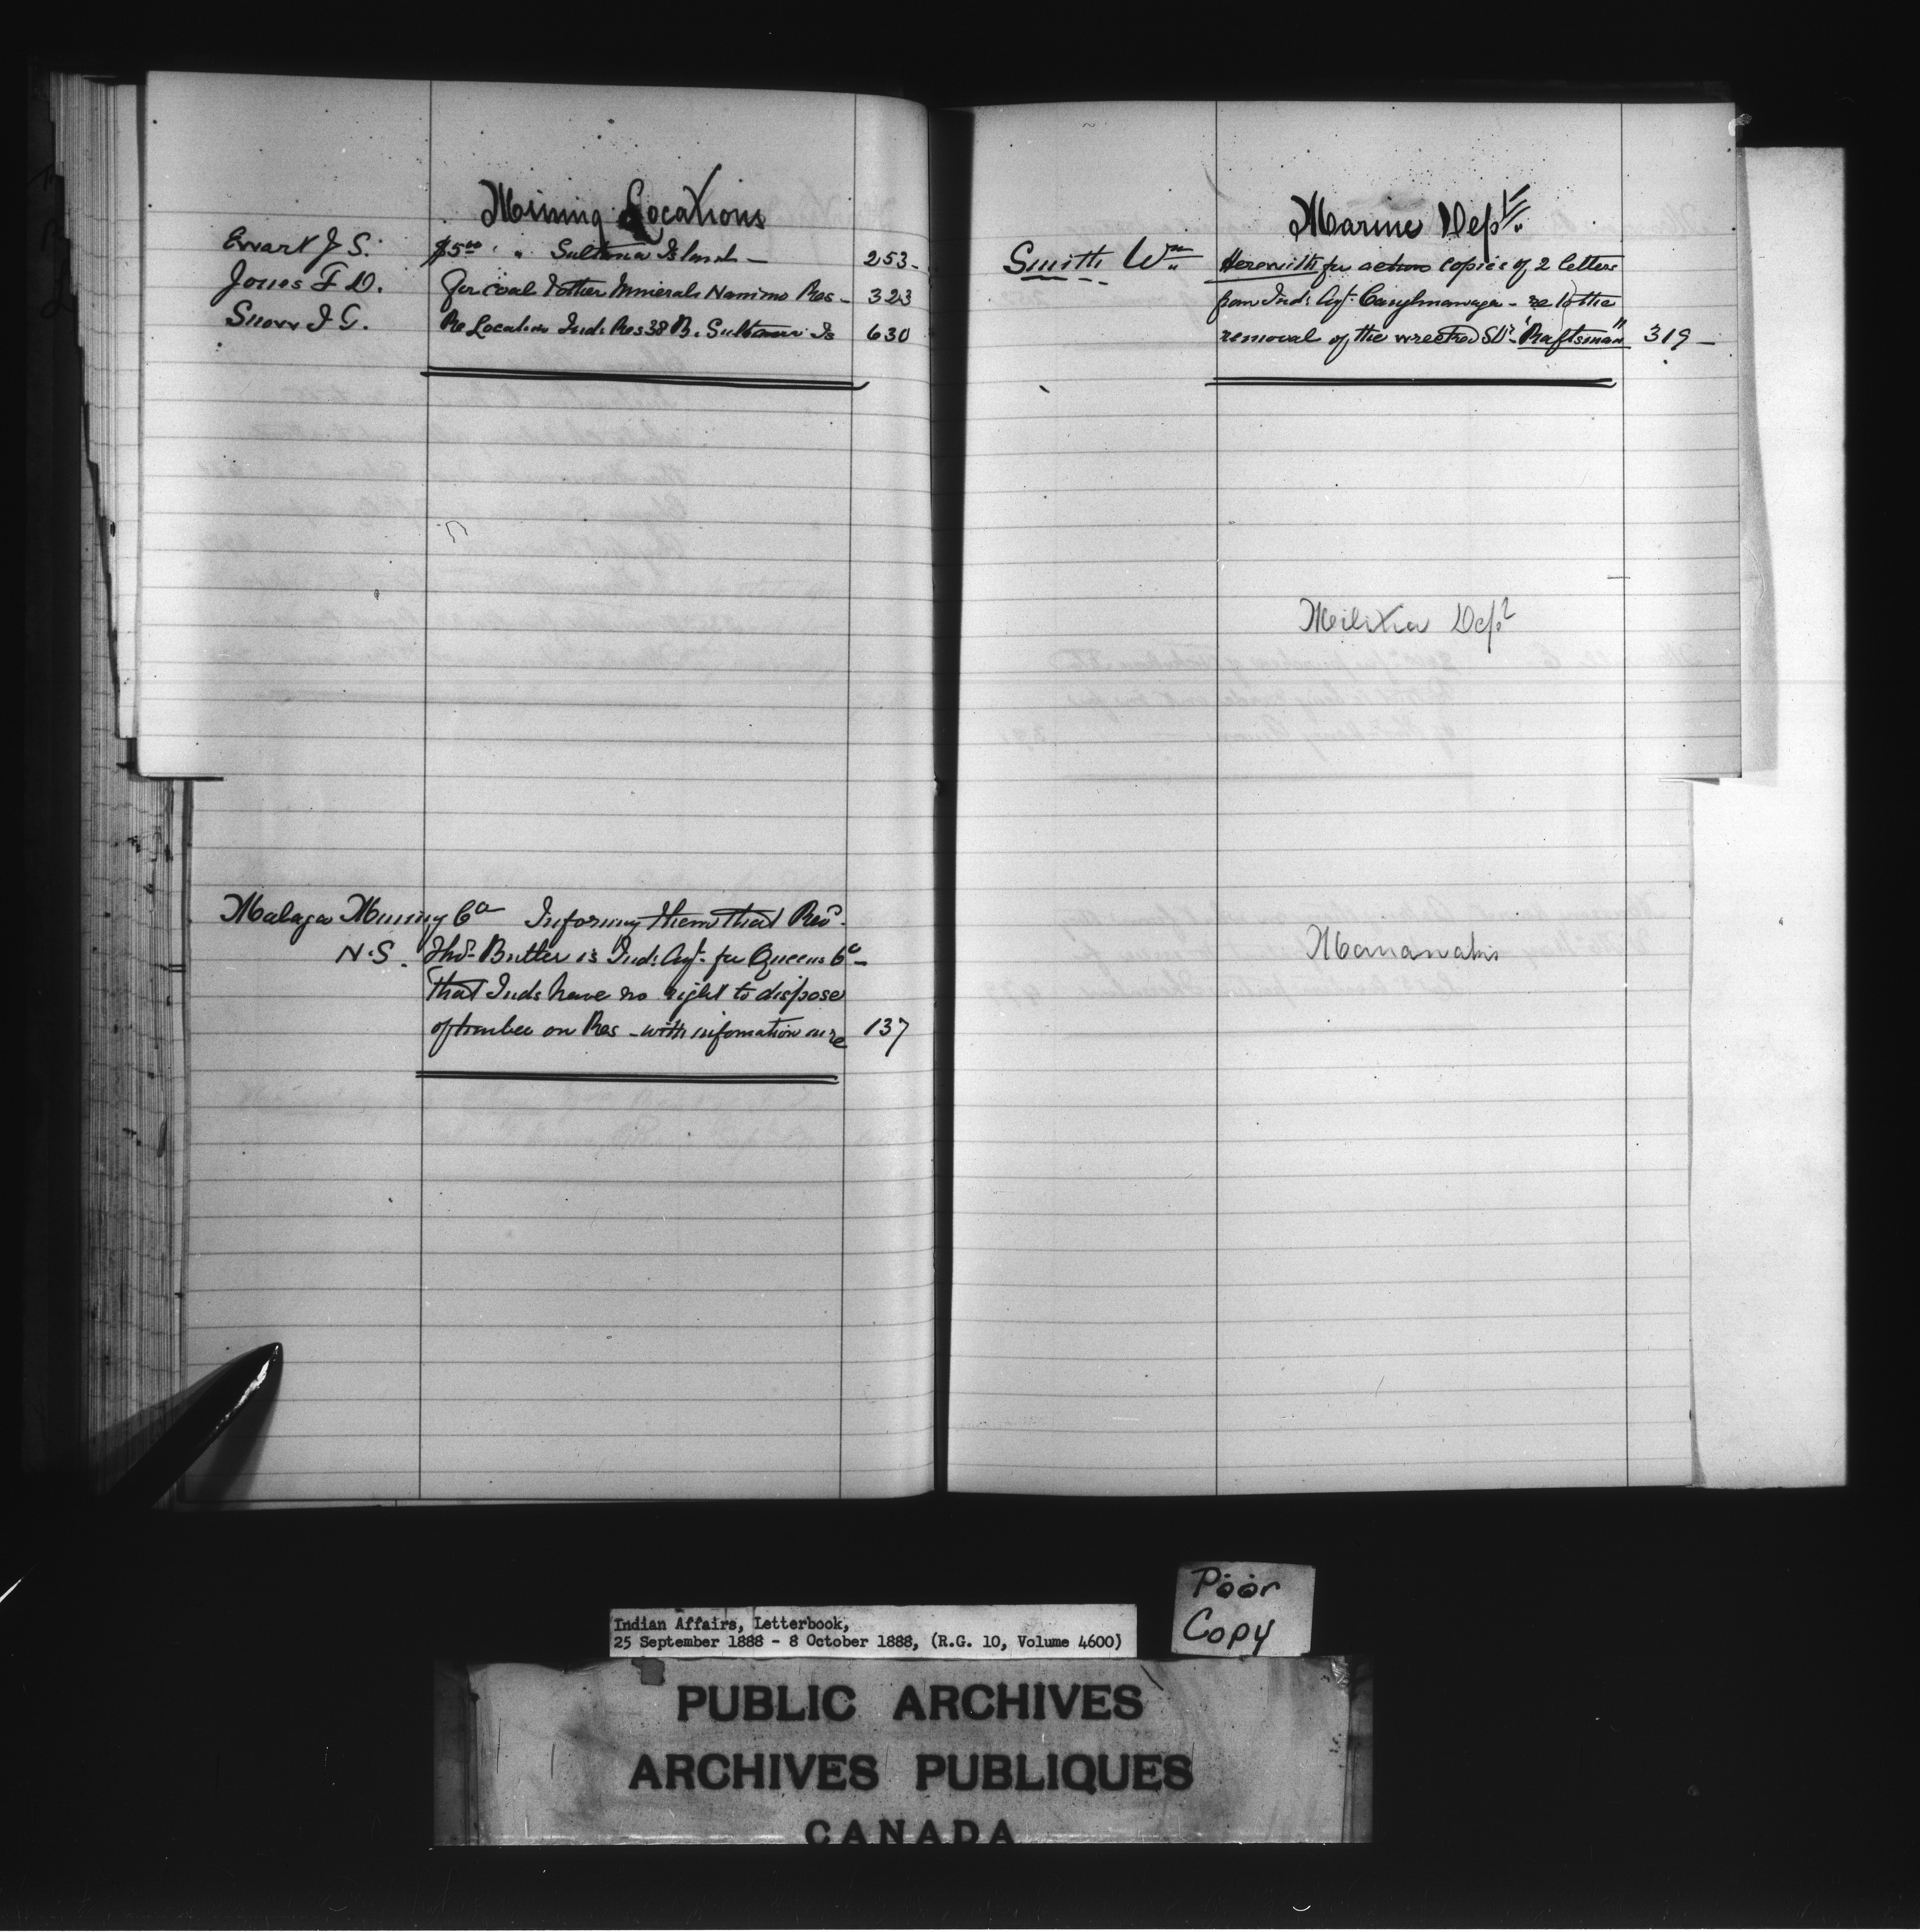 Mining Locations
Ewart J. S. $5.00 " " Sultana Island — 253-
Jones F. D. For coal & other minerals Nanimo Res - 323
Snow J. G. Re Location Ind: Res 38 B. Sultana Is 630
Malaga Mining Co Informing them that Revd.
N.S. Thos. Butler is Ind: Agt. for Queens Co -
That Inds have no right to dispose
of timber on Res - with infomation in re 137
Marine Dept.
Smith Wm Herewith for action copies of 2 letters
from Ind: Agt. Caughnawaga - re to the
removal of the wrecked Str. "Raftsman" 319 -
Meilitia Dept
Maniwaki
Poor
Copy
Indian Affairs, Letterbook,
25 September 1888 - 8 October 1888, (R.G. 10, Volume 4600)
PUBLIC ARCHIVES
ARCHIVES PUBLIQUES
CANADA